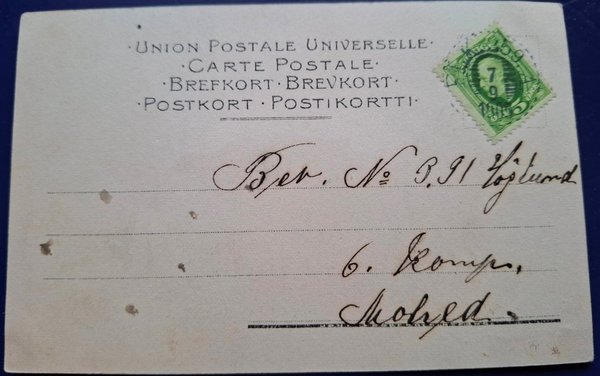 UNION POSTALE UNIVERSELLE.
· CARTE POSTALE ·
· BREFKORT · BREVKORT ·
· POSTKORT · POSTIKORTTI ·
7
9
5
Bev. No 3.91 Höglund
6. Komp.
Molred.